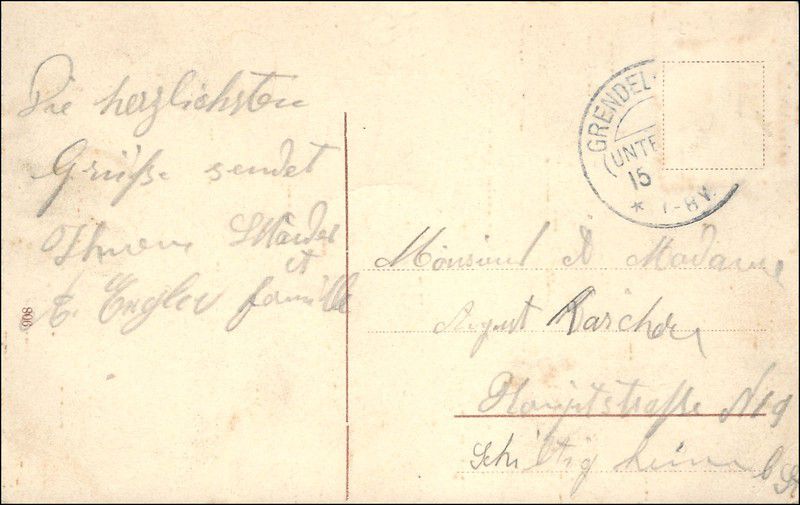 Die herzlichsten
Grüße sendet
Ihnen
et
E. Engler famille
908
GRENDEL
(UNTE
15
* 7-8V.
Monsieur & Madame
August Karcher
Hauptstraße N 19
Schiltigheim b St